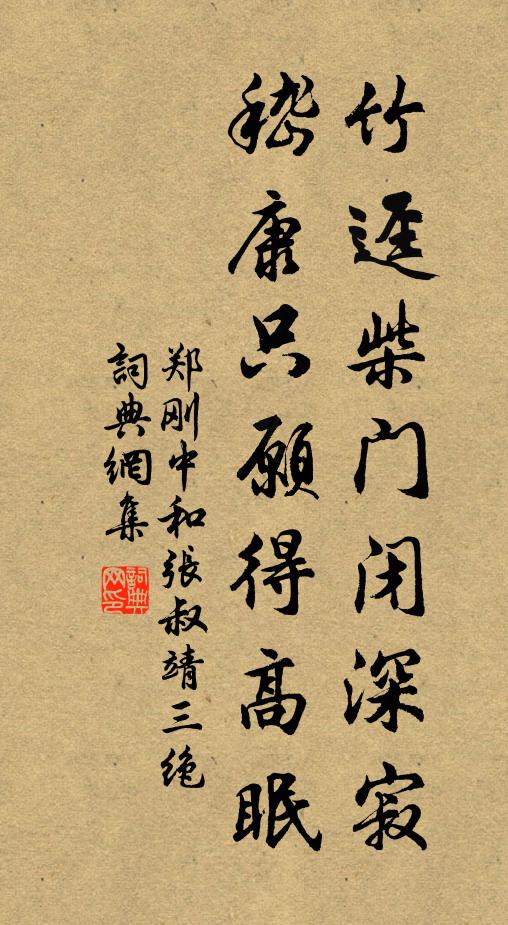 竹迳柴门闭深寂
嵇康只願得高眠
郑刚中和張叔靖三绝
詞典網集
詞典网印